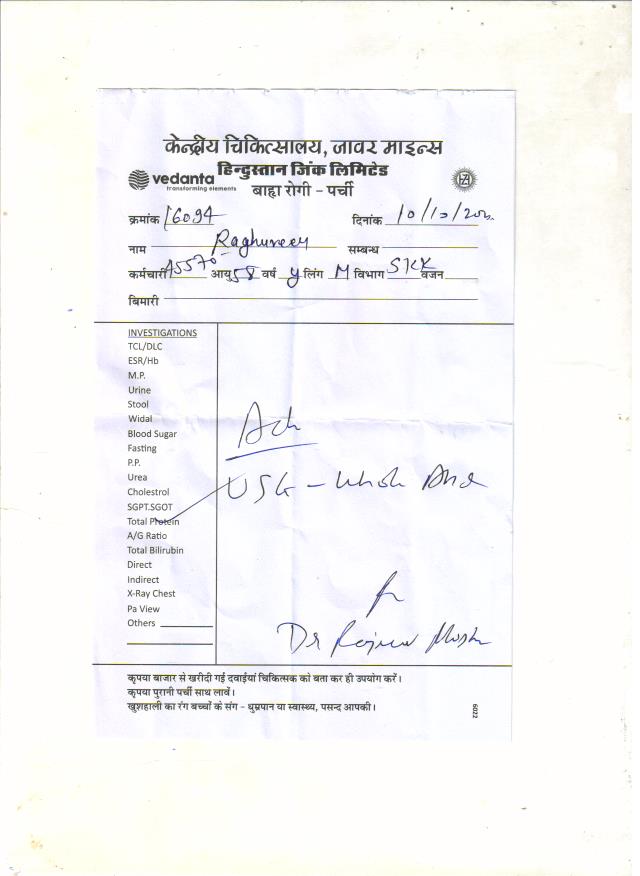 केन्द्रीय चिकित्सालय, जावर माइन्स
हिन्दुस्तान जिंक लिमिटेड
vedanta
transforming elements
बाह्य रोगी - पर्ची
क्रमांक 16094 दिनांक 10/10/20
नाम Raghuveer सम्बन्ध
कर्मचारी A5570 आयु 58 वर्ष y लिंग M विभाग SKK वजन
बिमारी
INVESTIGATIONS
TCL/DLC
ESR/Hb
M.P.
Urine
Stool
Widal
Blood Sugar
Fasting
P.P.
Urea
Cholestrol
SGPT.SGOT
Total Protein
A/G Ratio
Total Bilirubin
Direct
Indirect
X-Ray Chest
Pa View
Others
Adv
USG - Whole Abd
Dr Rajeev
कृपया बाजार से खरीदी गई दवाईयां चिकित्सक को बता कर ही उपयोग करें।
कृपया पुरानी पर्ची साथ लावें।
खुशहाली का रंग बच्चों के संग - धुम्रपान या स्वास्थ्य, पसन्द आपकी।
6022